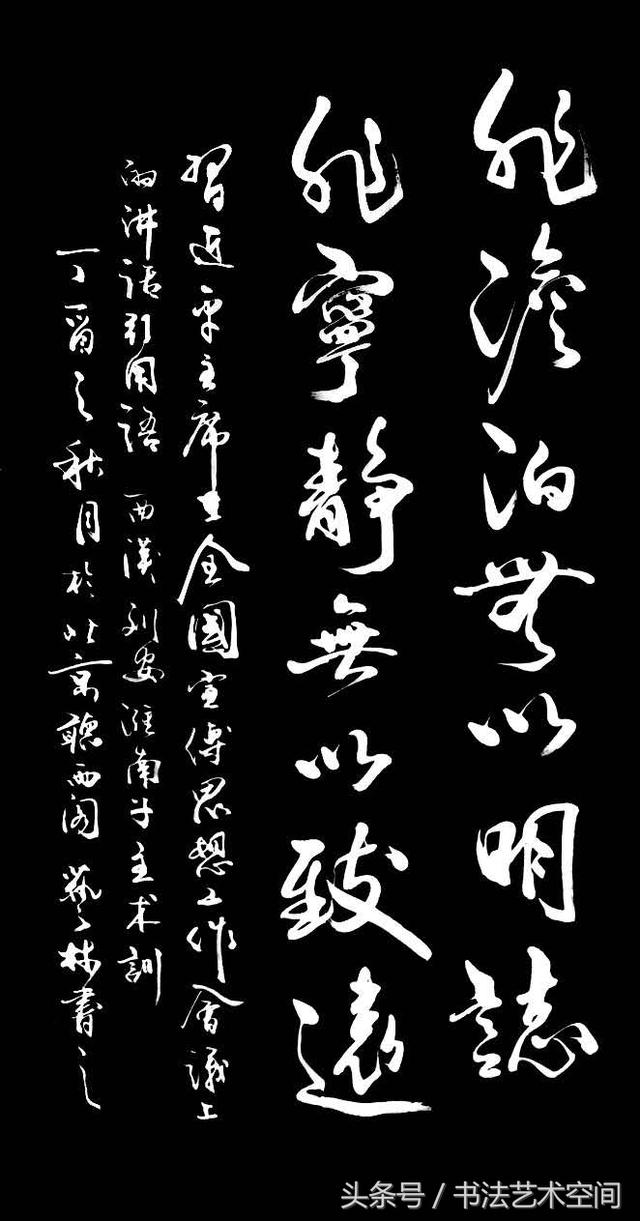 非澹泊無以明誌
非寧靜無以致遠
習近平主席在全國宣傳思想工作會議上
的講話引用語 西漢劉安淮南子主术訓
丁酉之秋月於北京聽雨阁 藝林書之
头条号／书法艺术空间